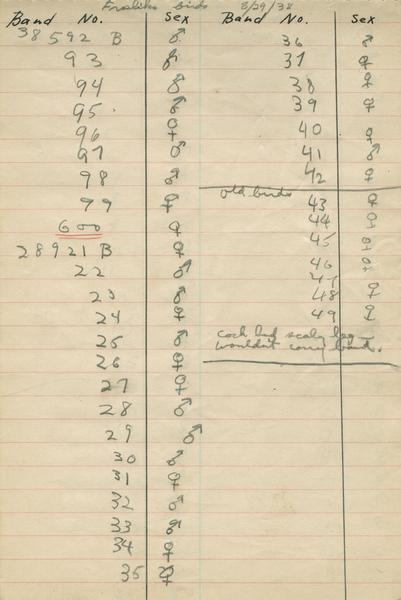 birds 8/29/38
Band No. Sex
38592 B ♂
93 ♂
94 ♂
95 ♂
96 ♀
97 ♂
98 ♂
99 ♀
600 ♀
28921 B ♀
22 ♂
23 ♂
24 ♀
25 ♂
26 ♀
27 ♀
28 ♂
29 ♂
30 ♂
31 ♀
32 ♂
33 ♂
34 ♀
35 ♀
Band No. Sex
36 ♂
37 ♀
38 ♀
39 ♀
40 ♀
41 ♂
42 ♀
old birds
43 ♀
44 ♀
45 ♀
46 ♀
47
48 ♀
49 ♀
cock had scaly leg
wouldn't carry band.